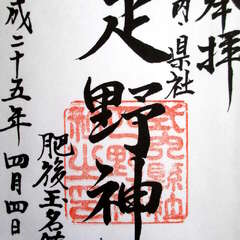 奉拝
内・県社
疋野神
肥後玉名
成二十五年四月四日